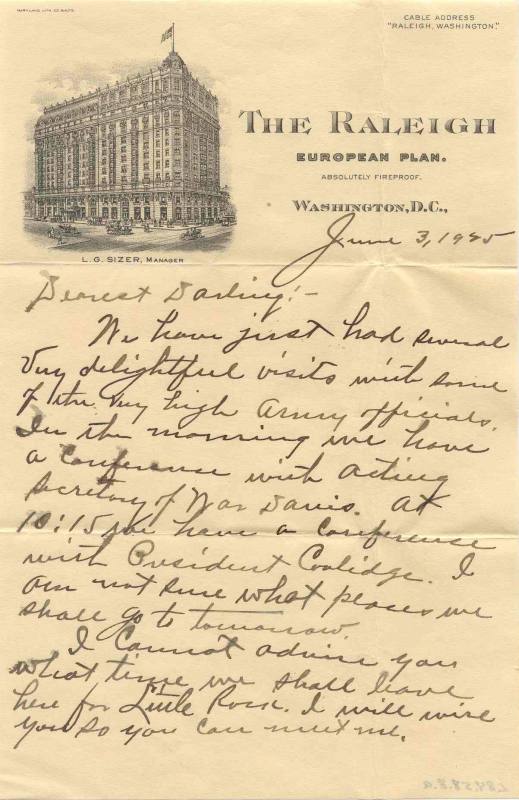 MARYLAND LITH. CO. BALTO.
CABLE ADDRESS
"RALEIGH, WASHINGTON."
THE RALEIGH
EUROPEAN PLAN.
ABSOLUTELY FIREPROOF.
WASHINGTON, D.C.,
L. G. SIZER, MANAGER
June 3, 1925
Dearest Darling:-
We have just had several
very delightful visits with some
of the very high Army officials.
In the morning we have
a conference with Acting
Secretary of War Davis. At
10:15 we have a conference
with President Coolidge. I
am not sure what places we
shall go to tomorrow.
I cannot advise you
what time we shall leave
here for Little Rock. I will wire
you so you can meet me.